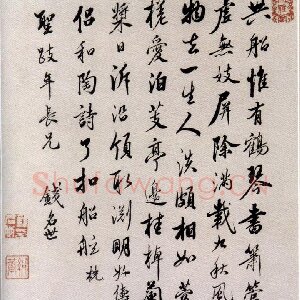 共船惟有鶴琴書簫管
虛無妓屏除載九秋風
物去一生人淡頗相如
槎愛泊菱亭邊桂棹蘭
槳日泝沿淵明
侶和陶詩了扣船舷枕
聖跂年長兄 錢名世
Shufawang.cn